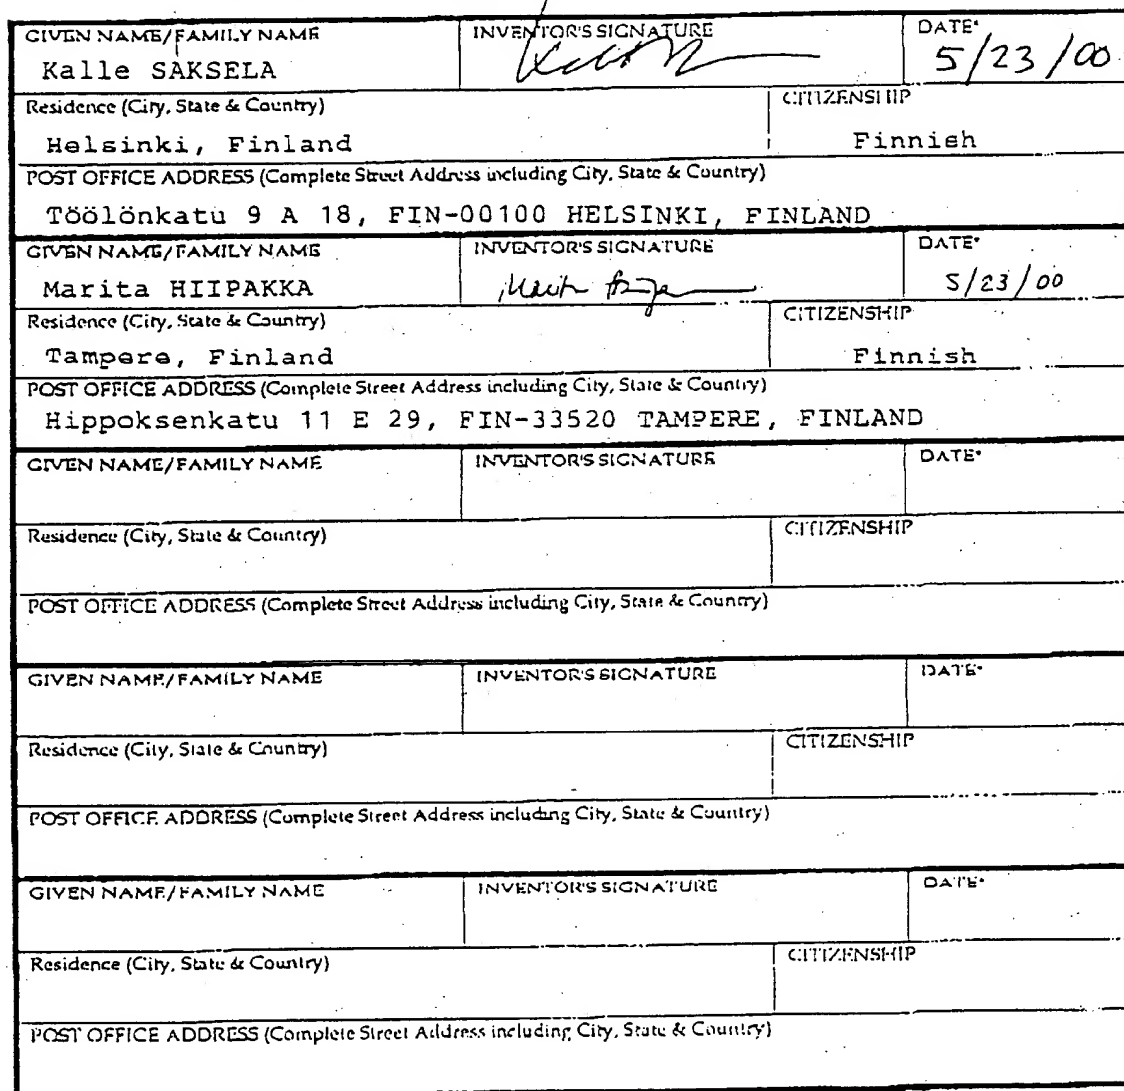 GIVEN NAME/FAMILY NAME INVENTOR'S SIGNATURE DATE*
Kalle SAKSELA 5/23/00
Residence (City, State & Country) CITIZENSHIP
Helsinki, Finland Finnish
POST OFFICE ADDRESS (Complete Street Address including City, State & Country)
Töölönkatu 9 A 18, FIN-00100 HELSINKI, FINLAND
GIVEN NAME/FAMILY NAME INVENTOR'S SIGNATURE DATE*
Marita HIIPAKKA 5/23/00
Residence (City, State & Country) CITIZENSHIP
Tampere, Finland Finnish
POST OFFICE ADDRESS (Complete Street Address including City, State & Country)
Hippoksenkatu 11 E 29, FIN-33520 TAMPERE, FINLAND
GIVEN NAME/FAMILY NAME INVENTOR'S SIGNATURE DATE*
Residence (City, State & Country) CITIZENSHIP
POST OFFICE ADDRESS (Complete Street Address including City, State & Country)
GIVEN NAME/FAMILY NAME INVENTOR'S SIGNATURE DATE*
Residence (City, State & Country) CITIZENSHIP
POST OFFICE ADDRESS (Complete Street Address including City, State & Country)
GIVEN NAME/FAMILY NAME INVENTOR'S SIGNATURE DATE*
Residence (City, State & Country) CITIZENSHIP
POST OFFICE ADDRESS (Complete Street Address including City, State & Country)